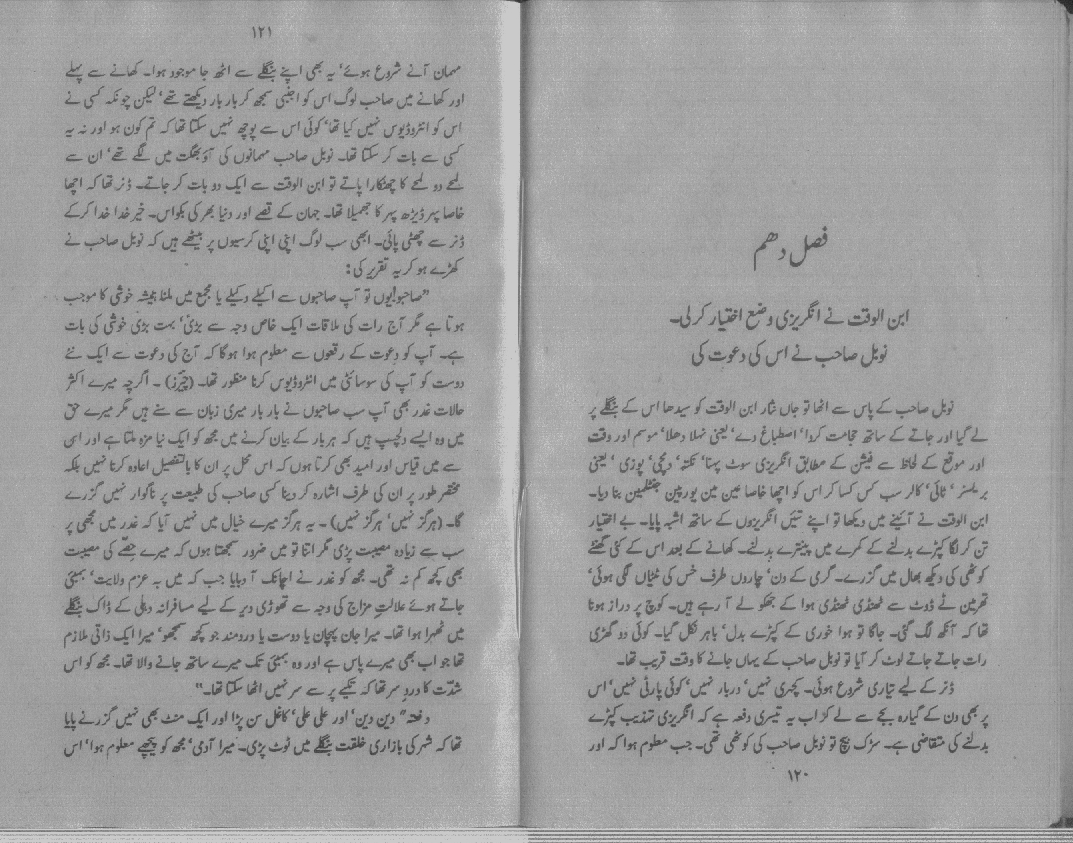 فصل دھم
ابن الوقت نے انگریزی وضع اختیار کر لی۔
نوبل صاحب نے اس کی دعوت کی
نوبل صاحب کے پاس سے اٹھا تو جاں نثار ابن الوقت کو سیدھا اس کے بنگلے پر
لے گیا اور جاتے کے ساتھ حجامت کروا' اصطباغ دے' یعنی نہلا دھلا' موسم اور وقت
اور موقع کے لحاظ سے فیشن کے مطابق انگریزی سوٹ پہنا' نکٹہ' دمچی' پوزی' یعنی
بریسٹر' ٹائی' کالر سب کس کسا کر اس کو اچھا خاصا عین مین یورپین جنٹلمین بنا دیا۔
ابن الوقت نے آئینے میں دیکھا تو اپنے تئیں انگریزوں کے ساتھ اشبہ پایا۔ بے اختیار
تن کر لگا کپڑے بدلنے کے کمرے میں پینترے بدلنے۔ کھانے کے بعد اس کے کئی گھنٹے
کوٹھی کی دیکھ بھال میں گزرے۔ گرمی کے دن' چاروں طرف خس کی ٹٹیاں لگی ہوئی'
تھرمن ٹے ڈوٹ سے ٹھنڈی ٹھنڈی ہوا کے جھکولے آ رہے ہیں۔ کوچ پر دراز ہونا
تھا کہ آنکھ لگ گئی۔ جاگا تو ہوا خوری کے کپڑے بدل' باہر نکل گیا۔ کوئی دو گھڑی
رات جاتے جاتے لوٹ کر آیا تو نوبل صاحب کے یہاں جانے کا وقت قریب تھا۔
ڈنر کے لیے تیاری شروع ہوئی۔ کچہری نہیں' دربار نہیں' کوئی پارٹی نہیں' اس
پر بھی دن کے گیارہ بجے سے لے کر اب یہ تیسری دفعہ ہے کہ انگریزی تہذیب کپڑے
بدلنے کی متقاضی ہے۔ سڑک بیچ تو نوبل صاحب کی کوٹھی تھی۔ جب معلوم ہوا کہ اور
۱۲۰
۱۲۱
مہمان آنے شروع ہوئے' یہ بھی اپنے بنگلے سے اٹھ جا موجود ہوا۔ کھانے سے پہلے
اور کھانے میں صاحب لوگ اس کو اجنبی سمجھ کر بار بار دیکھتے تھے' لیکن چونکہ کسی نے
اس کو انٹروڈیوس نہیں کیا تھا' کوئی اس سے پوچھ نہیں سکتا تھا کہ تم کون ہو اور نہ یہ
کسی سے بات کر سکتا تھا۔ نوبل صاحب مہمانوں کی آؤبھگت میں لگے تھے' ان سے
لمحے دو لمحے کا چھٹکارا پاتے تو ابن الوقت سے ایک دو بات کر جاتے۔ ڈنر تھا کہ اچھا
خاصا پہر ڈیڑھ پہر کا جھمیلا تھا۔ جہان کے قصے اور دنیا بھر کی بکواس۔ خیر خدا خدا کر کے
ڈنر سے چھٹی پائی۔ ابھی سب لوگ اپنی اپنی کرسیوں پر بیٹھے ہیں کہ نوبل صاحب نے
کھڑے ہو کر یہ تقریر کی:
"صاحبو! یوں تو آپ صاحبوں سے اکیلے دکیلے یا مجمع میں ملنا ہمیشہ خوشی کا موجب
ہوتا ہے مگر آج رات کی ملاقات ایک خاص وجہ سے بڑی' بہت بڑی خوشی کی بات
ہے۔ آپ کو دعوت کے رقعوں سے معلوم ہوا ہوگا کہ آج کی دعوت سے ایک نئے
دوست کو آپ کی سوسائٹی میں انٹروڈیوس کرنا منظور تھا۔ (چیرز)۔ اگرچہ میرے اکثر
حالات غدر بھی آپ سب صاحبوں نے بار بار میری زبان سے سنے ہیں مگر میرے حق
میں وہ ایسے دلچسپ ہیں کہ ہر بار کے بیان کرنے میں مجھ کو ایک نیا مزہ ملتا ہے اور اسی
سے میں قیاس اور امید بھی کرتا ہوں کہ اس محل پر ان کا بالتفصیل اعادہ کرنا نہیں بلکہ
مختصر طور پر ان کی طرف اشارہ کر دینا کسی صاحب کی طبیعت پر ناگوار نہیں گزرے
گا۔ (ہرگز نہیں' ہرگز نہیں)۔ یہ ہرگز میرے خیال میں نہیں آیا کہ غدر میں مجھی پر
سب سے زیادہ مصیبت پڑی مگر اتنا تو میں ضرور سمجھتا ہوں کہ میرے حصّے کی مصیبت
بھی کچھ کم نہ تھی۔ مجھ کو غدر نے اچانک آ دبایا جب کہ میں بہ عزم ولایت' بمبئی
جاتے ہوئے علالتِ مزاج کی وجہ سے تھوڑی دیر کے لیے مسافرانہ دہلی کے ڈاک بنگلے
میں ٹھہرا ہوا تھا۔ میرا جان پہچان یا دوست یا دردمند جو کچھ سمجھو' میرا ایک ذاتی ملازم
تھا جو اب بھی میرے پاس ہے اور وہ بمبئی تک میرے ساتھ جانے والا تھا۔ مجھ کو اس
شدّت کا دردِ سر تھا کہ تکیے پر سے سر نہیں اٹھا سکتا تھا۔"
دفعتہً "دین دین' اور علی علی' کا غل سن پڑا اور ایک منٹ بھی نہیں گزرنے پایا
تھا کہ شہر کی بازاری خلقت بنگلے میں ٹوٹ پڑی۔ میرا آدمی' مجھ کو پیچھے معلوم ہوا' اس